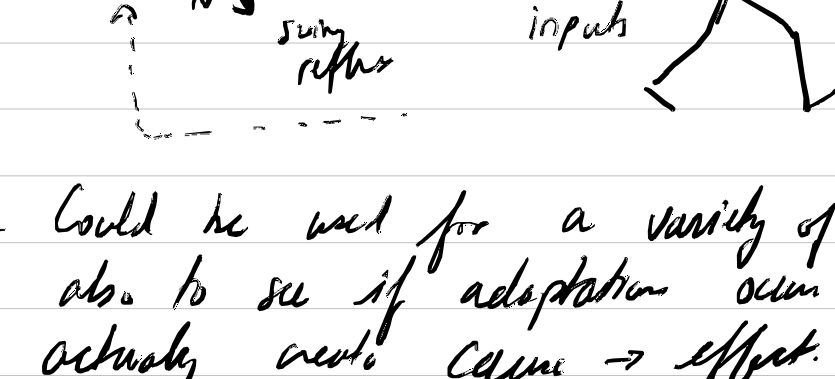 swing inputs
reflex
- Could be used for a variety of
also to see if adaptations occur
actually create cause → effect.